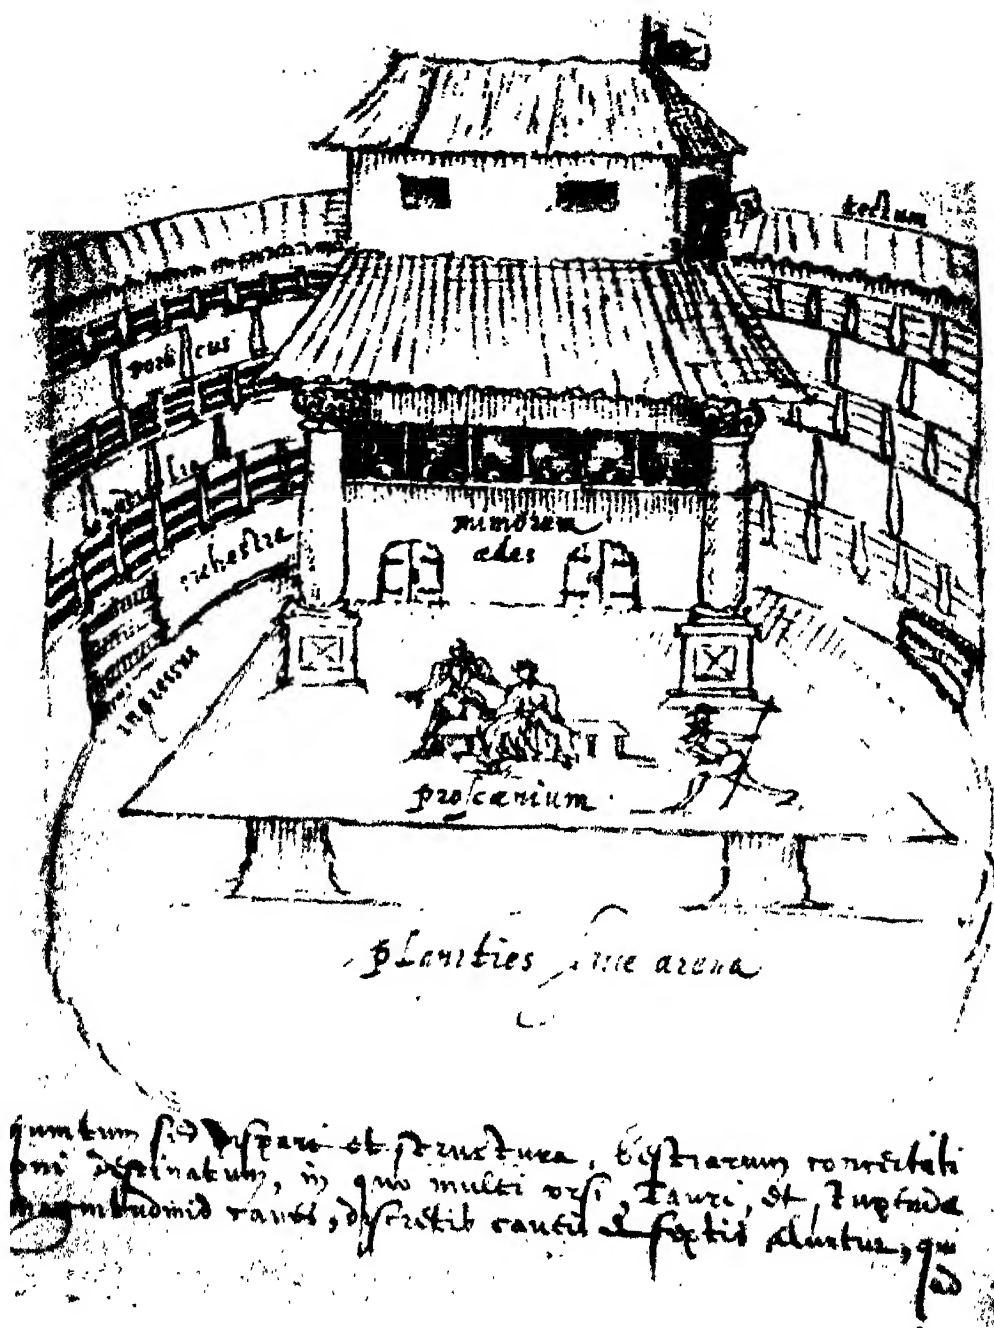 tectum
porticus
sedilia
orchestra
mimorum
ædes
ingressus
proscænium
planities sive arena
quintum sed dispari et structura, bestiarum concertati
oni destinatum, in quo multi ursi, Tauri, et stupendæ
magnitudinis canes, discretis caveis et septis aluntur, qui
ad